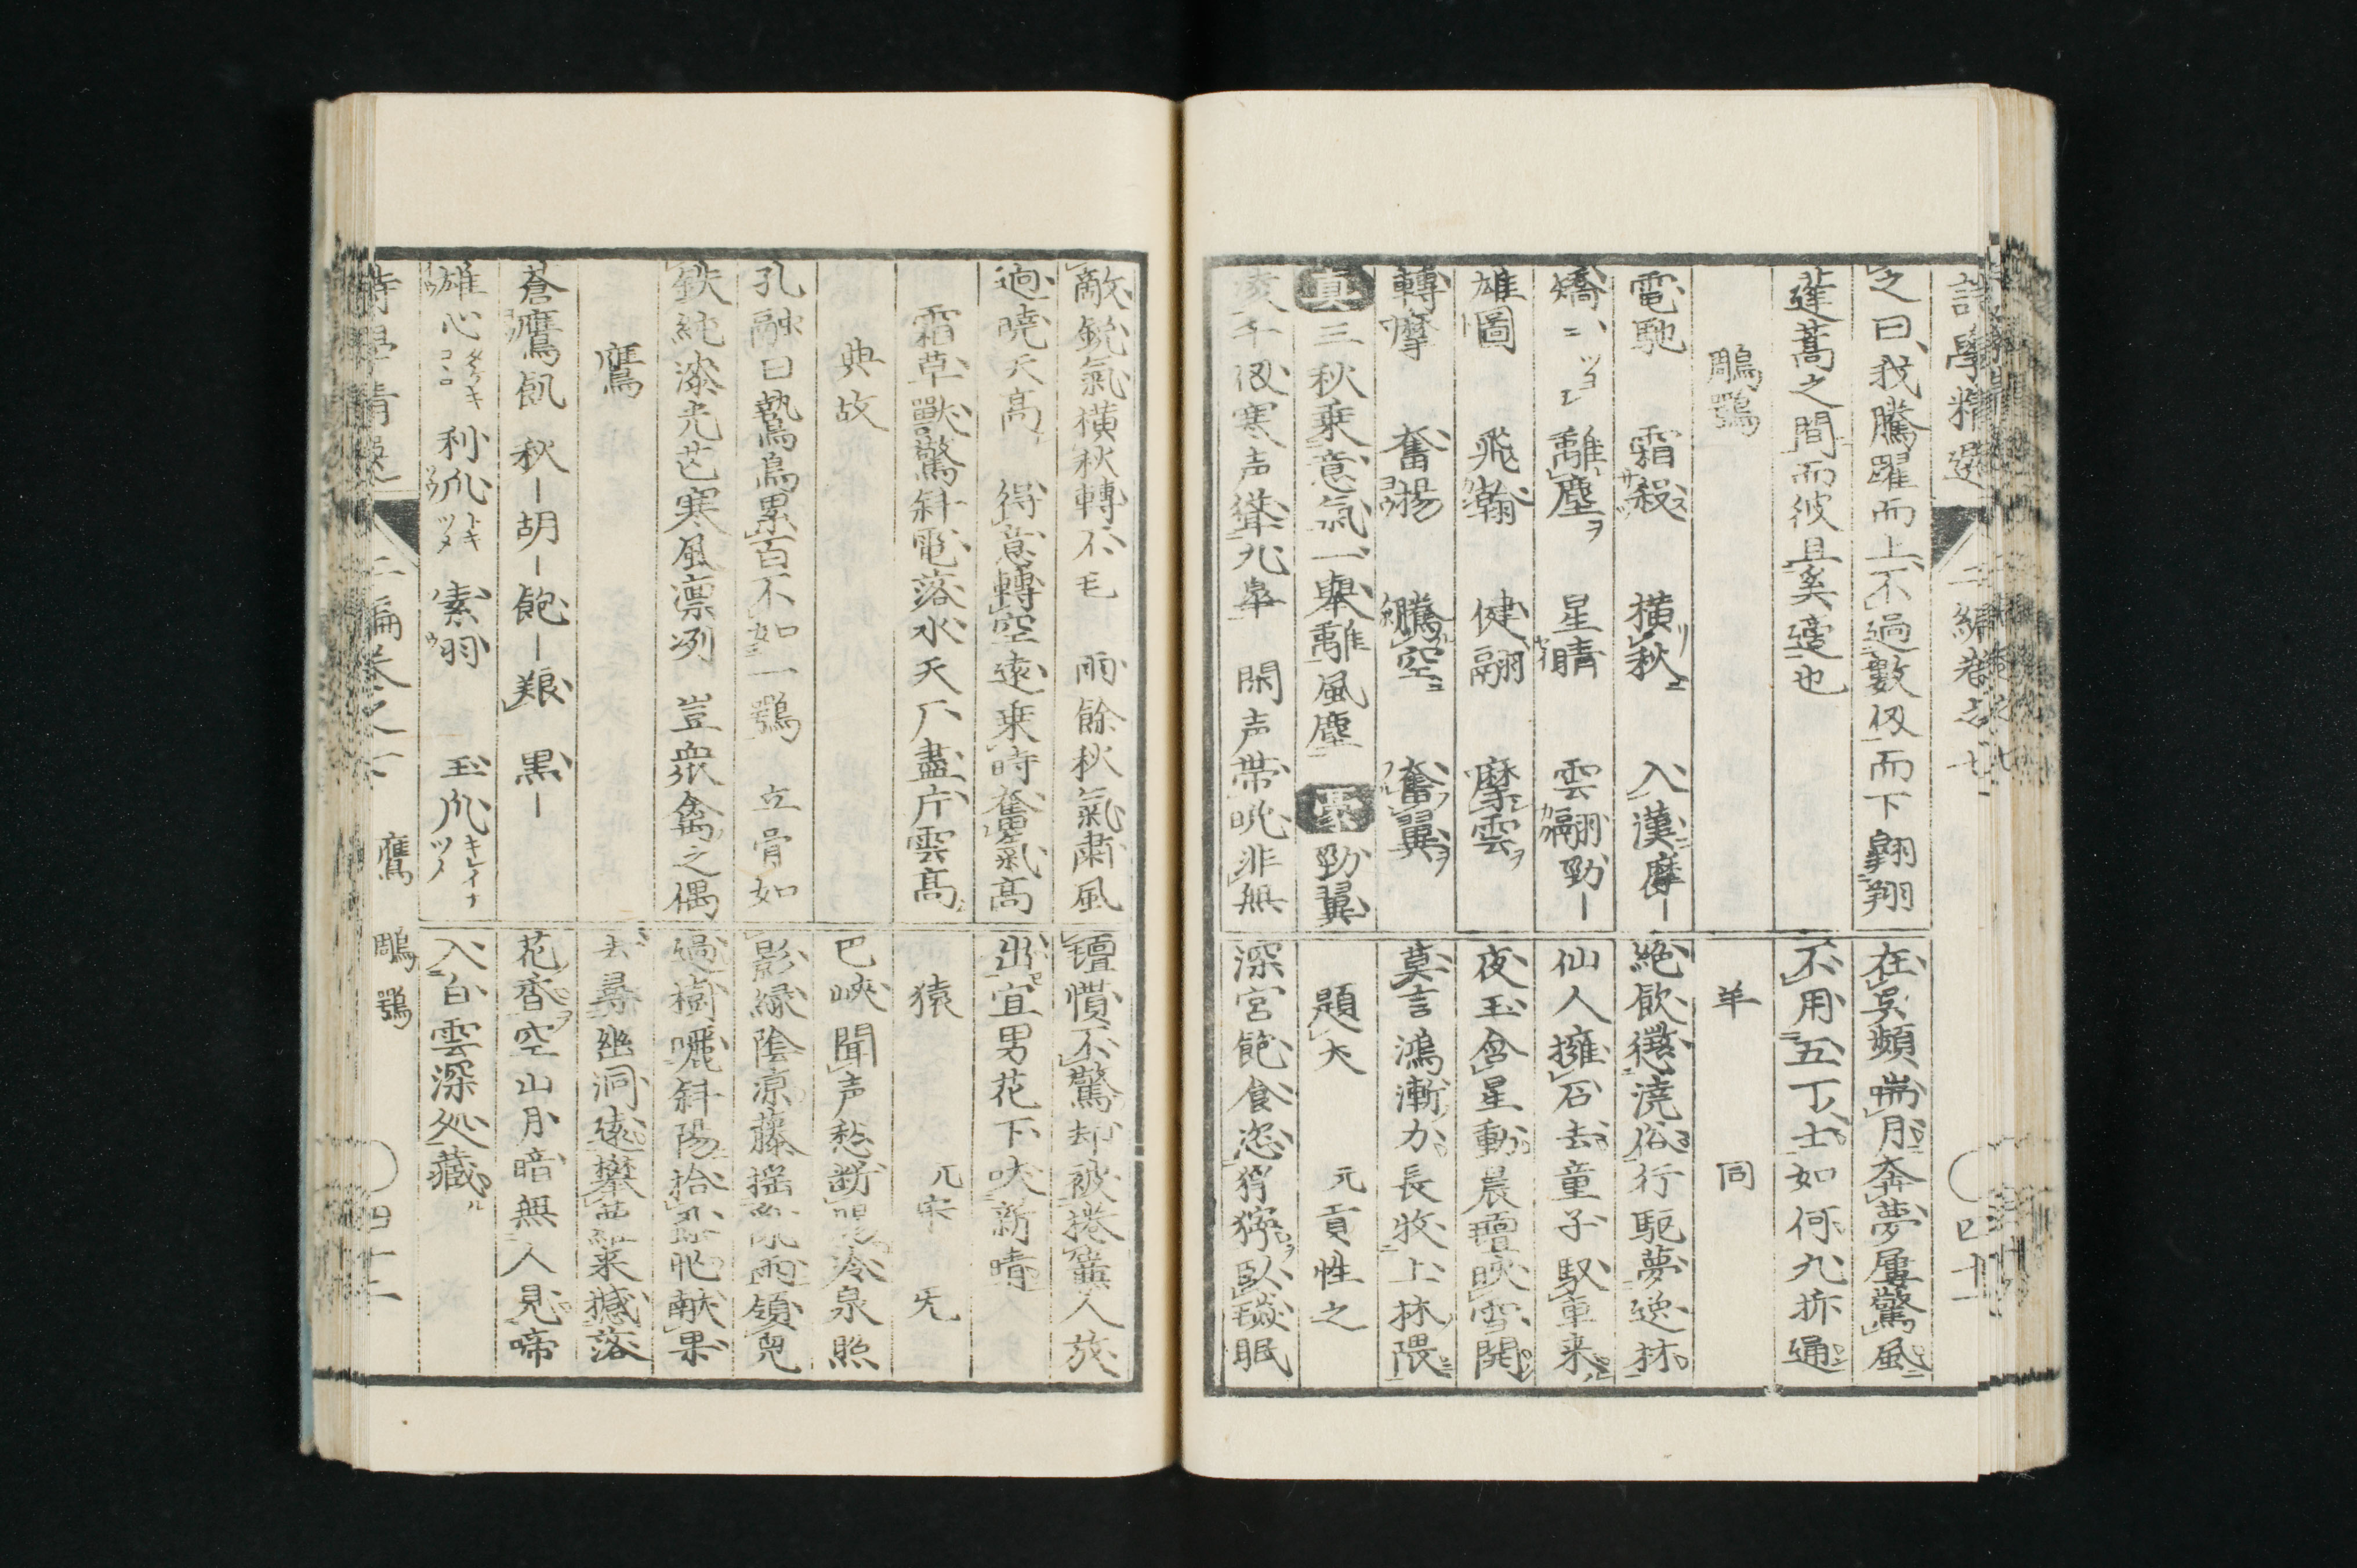 詩學精選 二編巻之七 四十一
之曰我騰躍而上不過數仭而下翺翔
蓬蒿之間而彼且奚適也
鵰鶚
電馳 霜殺 横秋 入漢 摩-
矯〻ツヨシ 離塵ヲ 星睛 雲翮 勁-
雄圖 飛瀚 健翮 摩雲ヲ
轉摩 奮揚 騰空ニ 奮翼ヲ
真 三秋乗意氣一擧離風塵 勁翼
凌千仭寒声聳九皐 閑声帯晩非無
在呉頻喘月奔夢屢驚風
不用五丁士如何九折通
羊 同
絶飲懲澆俗行駈夢逸材
仙人擁石去童子馭車来
夜玉含星動晨氈映雪開
莫言鴻漸力長牧上林隈
題犬 元貢性之
深宮飽食恣猙獰臥毯眠
敵鋭氣横秋轉不毛 雨餘秋氣粛風
逈暁天高 得意轉空遠乗時奮氣高
霜草獸驚斜電落水天厂盡片雲高
典故
孔融曰鷙鳥累百不如一鶚 立骨如
鉄純漆光芒寒風凛冽 豈衆禽之偶
鷹
蒼鷹 飢 秋-胡-飽-狼 黒-
雄心 利爪トキツメ 素羽 玉爪キレイナツメ
氈慣不驚却被捲簾人放
出宜男花下吠新晴
猿
巴峽聞声愁断 冷泉照
影緑陰凉藤揺 雨領兒
過樹囇斜陽拾 献果
去尋幽洞遠攀 来撼落
花香空山月暗無人見啼
入白雲深処藏
詩學精選 二編巻之七 鷹 鵰鶚 四十二